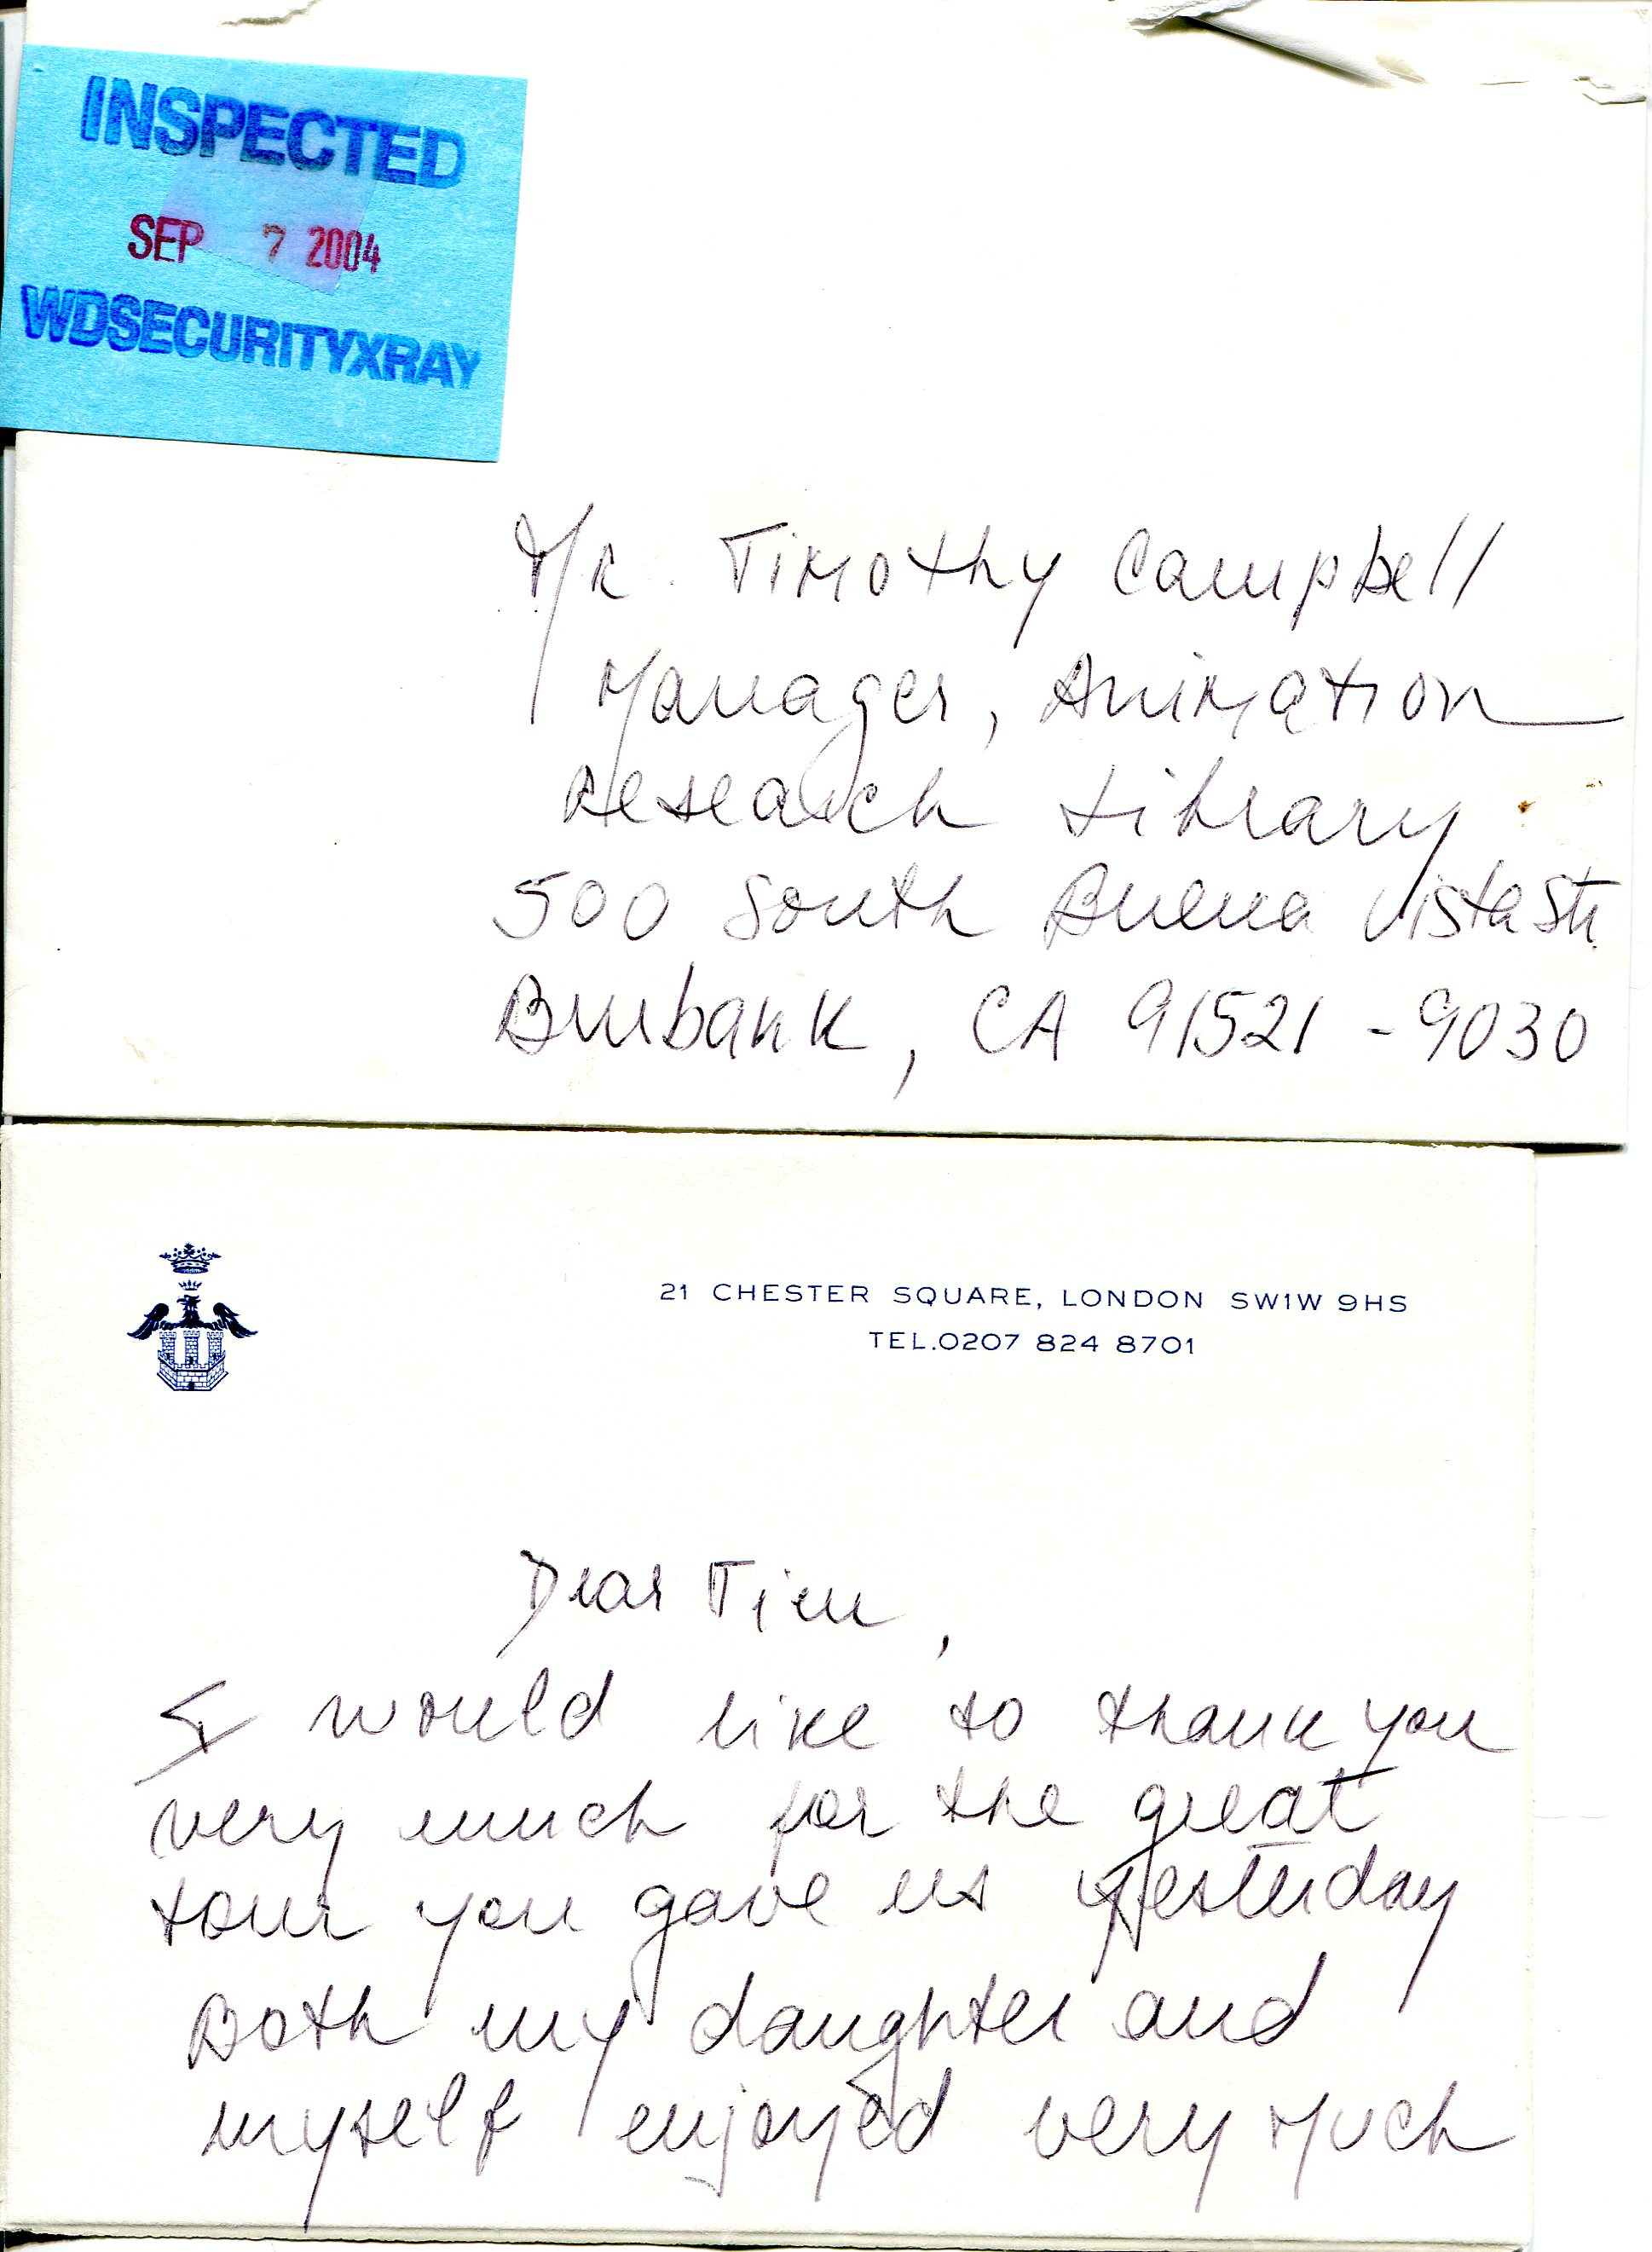 INSPECTED
SEP 7 2004
WDSECURITYXRAY
Mr. Timothy Campbell
Manager, Animation
Research Library
500 South Buena Vista Str.
Burbank, CA 91521-9030
21 CHESTER SQUARE, LONDON SW1W 9HS
TEL.0207 824 8701
Dear Tim,
I would like to thank you
very much for the great
tour you gave us yesterday
Both my daughter and
myself enjoyed very much